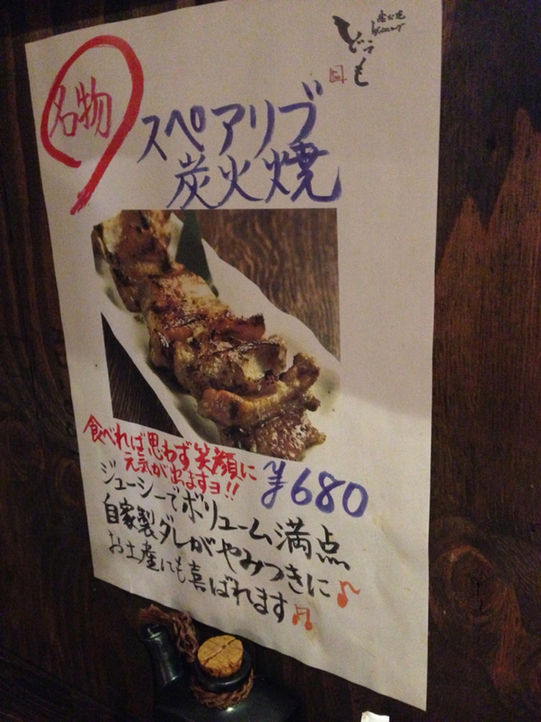 どうも
名物
スペアリブ
炭火焼
食べれば思わず笑顔に
元気が出ますヨ!!
¥680
ジューシーでボリューム満点
自家製ダレがやみつきに♪
お土産にも喜ばれます♫